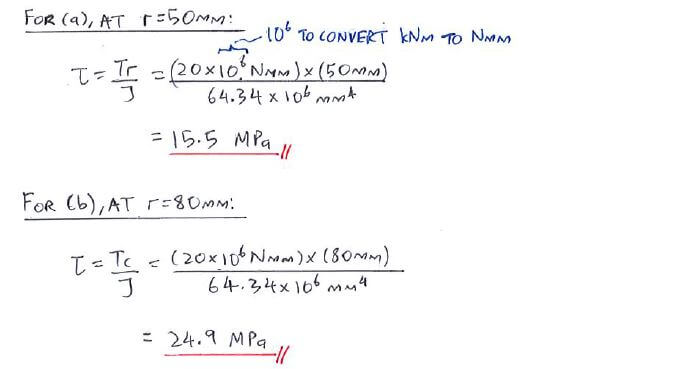 FOR (a), AT r=50MM:
10⁶ TO CONVERT kNM TO NMM
τ = Tr/J = (20×10⁶ NMM)×(50MM) / 64.34×10⁶ MM⁴
= 15.5 MPa //
FOR (b), AT r=80MM:
τ = Tc/J = (20×10⁶ NMM)×(80MM) / 64.34×10⁶ MM⁴
= 24.9 MPa //